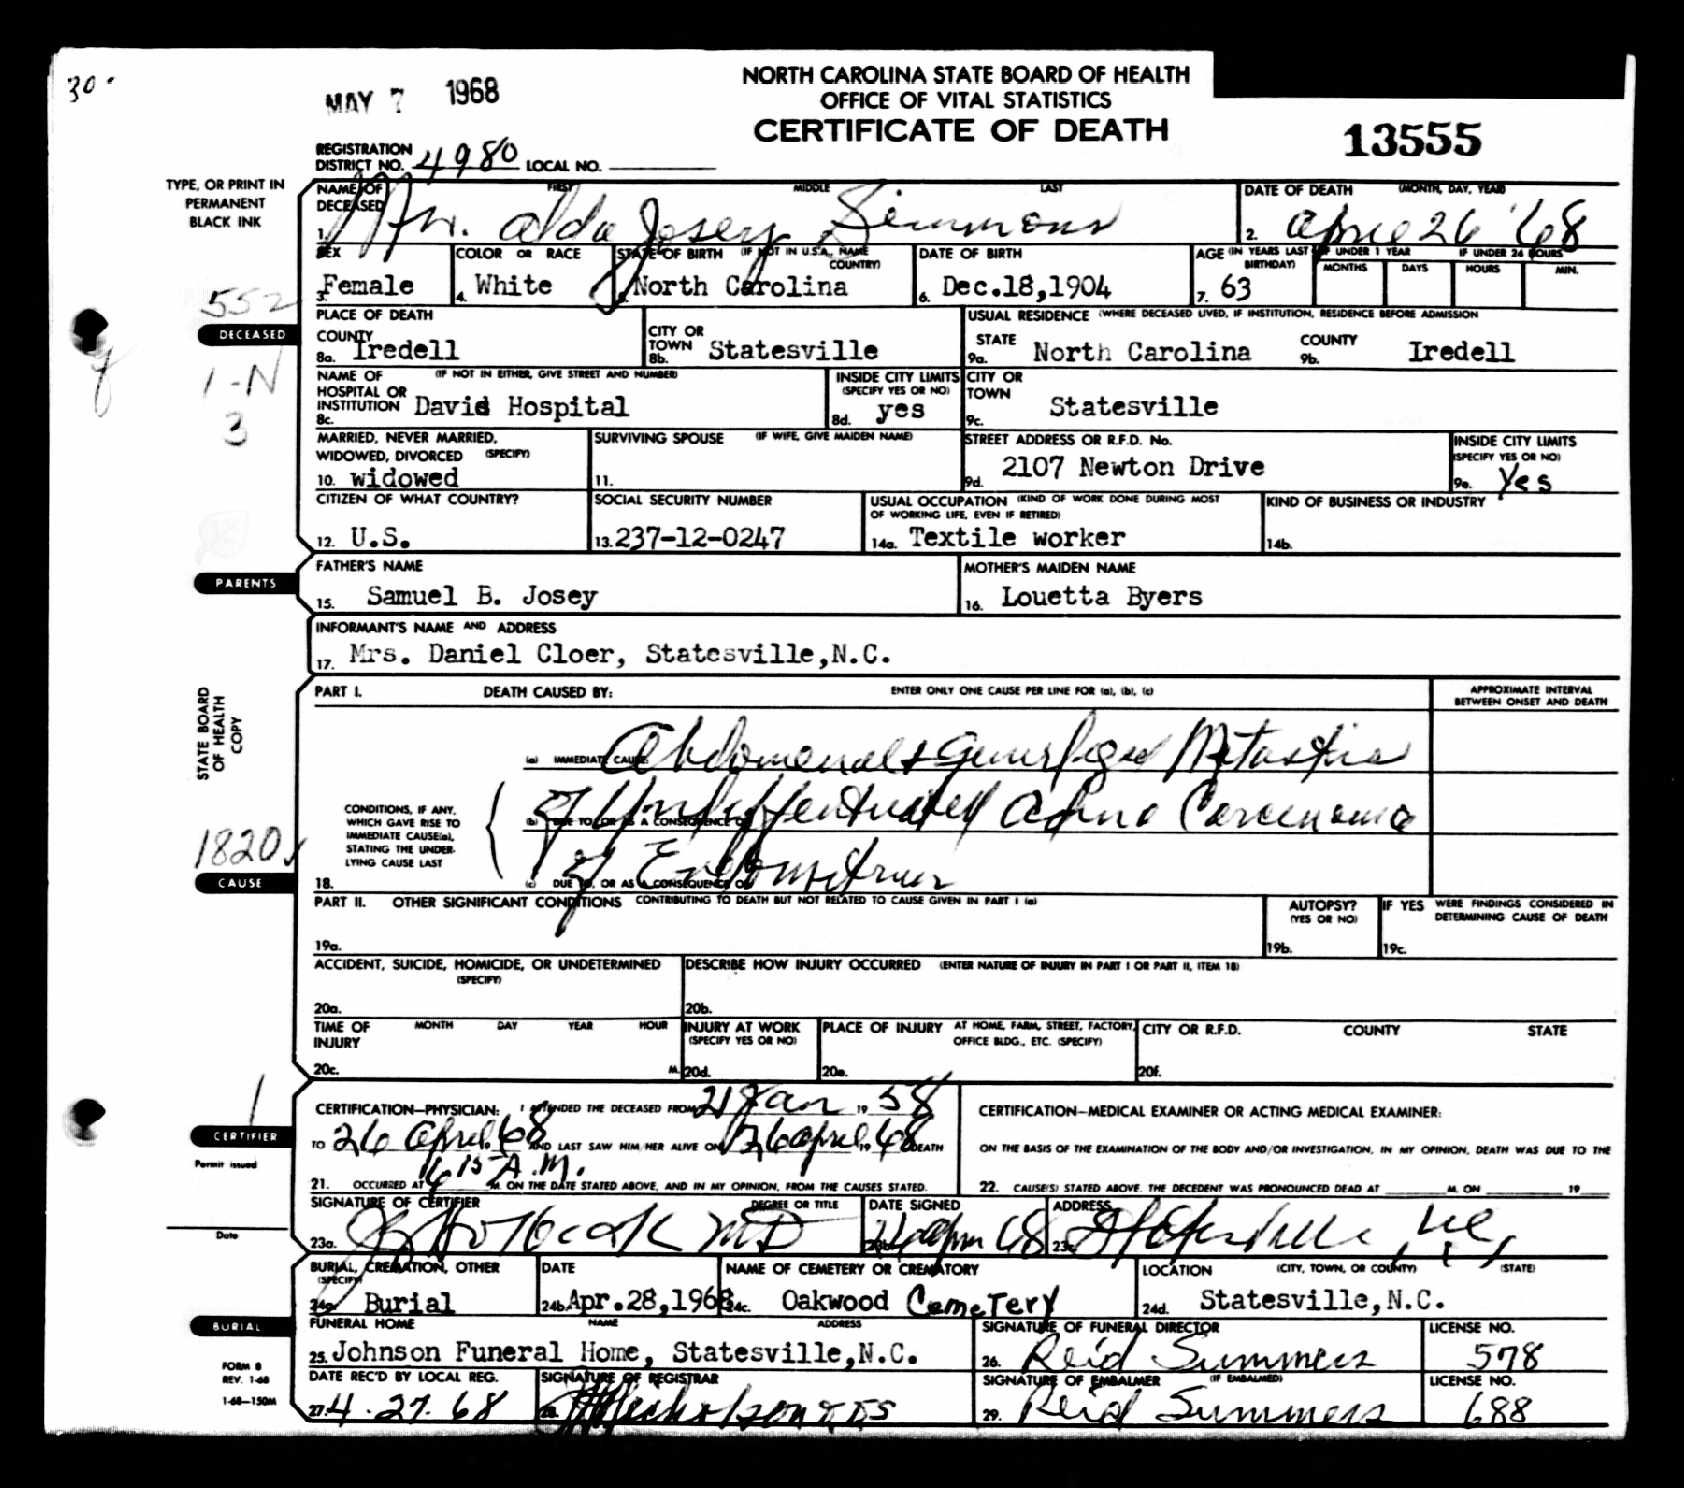 30.
MAY 7 1968
NORTH CAROLINA STATE BOARD OF HEALTH
OFFICE OF VITAL STATISTICS
CERTIFICATE OF DEATH
13555
REGISTRATION
DISTRICT NO. 4980 LOCAL NO.
TYPE, OR PRINT IN
PERMANENT
BLACK INK
NAME OF DECEASED FIRST MIDDLE LAST DATE OF DEATH (MONTH, DAY, YEAR)
1. Mrs. Alda Josey Simmons 2. April 26 '68
SEX COLOR OR RACE STATE OF BIRTH (IF NOT IN U.S.A., NAME COUNTRY) DATE OF BIRTH AGE (IN YEARS LAST BIRTHDAY) IF UNDER 1 YEAR IF UNDER 24 HOURS
MONTHS DAYS HOURS MIN.
3. Female 4. White 5. North Carolina 6. Dec.18,1904 7. 63
552
DECEASED
1-N
3
PLACE OF DEATH USUAL RESIDENCE (WHERE DECEASED LIVED, IF INSTITUTION, RESIDENCE BEFORE ADMISSION
COUNTY CITY OR TOWN STATE COUNTY
8a. Iredell 8b. Statesville 9a. North Carolina 9b. Iredell
NAME OF HOSPITAL OR INSTITUTION (IF NOT IN EITHER, GIVE STREET AND NUMBER) INSIDE CITY LIMITS (SPECIFY YES OR NO) CITY OR TOWN
8c. Davis Hospital 8d. yes 9c. Statesville
MARRIED, NEVER MARRIED, WIDOWED, DIVORCED (SPECIFY) SURVIVING SPOUSE (IF WIFE, GIVE MAIDEN NAME) STREET ADDRESS OR R.F.D. No. INSIDE CITY LIMITS (SPECIFY YES OR NO)
10. widowed 11. 9d. 2107 Newton Drive 9e. Yes
CITIZEN OF WHAT COUNTRY? SOCIAL SECURITY NUMBER USUAL OCCUPATION (KIND OF WORK DONE DURING MOST OF WORKING LIFE, EVEN IF RETIRED) KIND OF BUSINESS OR INDUSTRY
12. U.S. 13. 237-12-0247 14a. Textile worker 14b.
PARENTS
FATHER'S NAME MOTHER'S MAIDEN NAME
15. Samuel B. Josey 16. Louetta Byers
INFORMANT'S NAME AND ADDRESS
17. Mrs. Daniel Cloer, Statesville,N.C.
STATE BOARD
OF HEALTH
COPY
PART I. DEATH CAUSED BY: ENTER ONLY ONE CAUSE PER LINE FOR (a), (b), (c) APPROXIMATE INTERVAL BETWEEN ONSET AND DEATH
(a) IMMEDIATE CAUSE Abdomenal & Generalized Metastasis
CONDITIONS, IF ANY,
WHICH GAVE RISE TO
IMMEDIATE CAUSE(a),
STATING THE UNDER-
LYING CAUSE LAST
(b) DUE TO, OR AS A CONSEQUENCE OF of Undifferentiated Adeno Carcinoma
(c) DUE TO, OR AS A CONSEQUENCE OF of Endometrium
18.
1820
CAUSE
PART II. OTHER SIGNIFICANT CONDITIONS CONTRIBUTING TO DEATH BUT NOT RELATED TO CAUSE GIVEN IN PART I (a) AUTOPSY? (YES OR NO) IF YES WERE FINDINGS CONSIDERED IN DETERMINING CAUSE OF DEATH
19a. 19b. 19c.
ACCIDENT, SUICIDE, HOMICIDE, OR UNDETERMINED (SPECIFY) DESCRIBE HOW INJURY OCCURRED (ENTER NATURE OF INJURY IN PART I OR PART II, ITEM 18)
20a. 20b.
TIME OF INJURY MONTH DAY YEAR HOUR INJURY AT WORK (SPECIFY YES OR NO) PLACE OF INJURY AT HOME, FARM, STREET, FACTORY, OFFICE BLDG., ETC. (SPECIFY) CITY OR R.F.D. COUNTY STATE
20c. M. 20d. 20e. 20f.
1
CERTIFIER
Permit issued
Date
CERTIFICATION—PHYSICIAN: I ATTENDED THE DECEASED FROM 21 Jan 19 58 CERTIFICATION—MEDICAL EXAMINER OR ACTING MEDICAL EXAMINER:
TO 26 April 68 AND LAST SAW HIM/HER ALIVE ON 26 April 19 68 DEATH ON THE BASIS OF THE EXAMINATION OF THE BODY AND/OR INVESTIGATION, IN MY OPINION, DEATH WAS DUE TO THE
21. OCCURRED AT 6 15 A.M. M. ON THE DATE STATED ABOVE, AND IN MY OPINION, FROM THE CAUSES STATED. 22. CAUSE(S) STATED ABOVE. THE DECEDENT WAS PRONOUNCED DEAD AT M. ON 19
SIGNATURE OF CERTIFIER DEGREE OR TITLE DATE SIGNED ADDRESS
23a. Holbrook MD 23b. 23c. Statesville, N.C.
BURIAL, CREMATION, OTHER (SPECIFY) DATE NAME OF CEMETERY OR CREMATORY LOCATION (CITY, TOWN, OR COUNTY) (STATE)
24a. Burial 24b. Apr.28,1968 24c. Oakwood Cemetery 24d. Statesville,N.C.
BURIAL
FUNERAL HOME NAME ADDRESS SIGNATURE OF FUNERAL DIRECTOR LICENSE NO.
25. Johnson Funeral Home, Statesville,N.C. 26. Reid Summers 578
FORM 8
REV. 1-68
1-68—150M
DATE REC'D BY LOCAL REG. SIGNATURE OF REGISTRAR SIGNATURE OF EMBALMER (IF EMBALMED) LICENSE NO.
27. 4.27.68 28. 29. Reid Summers 688